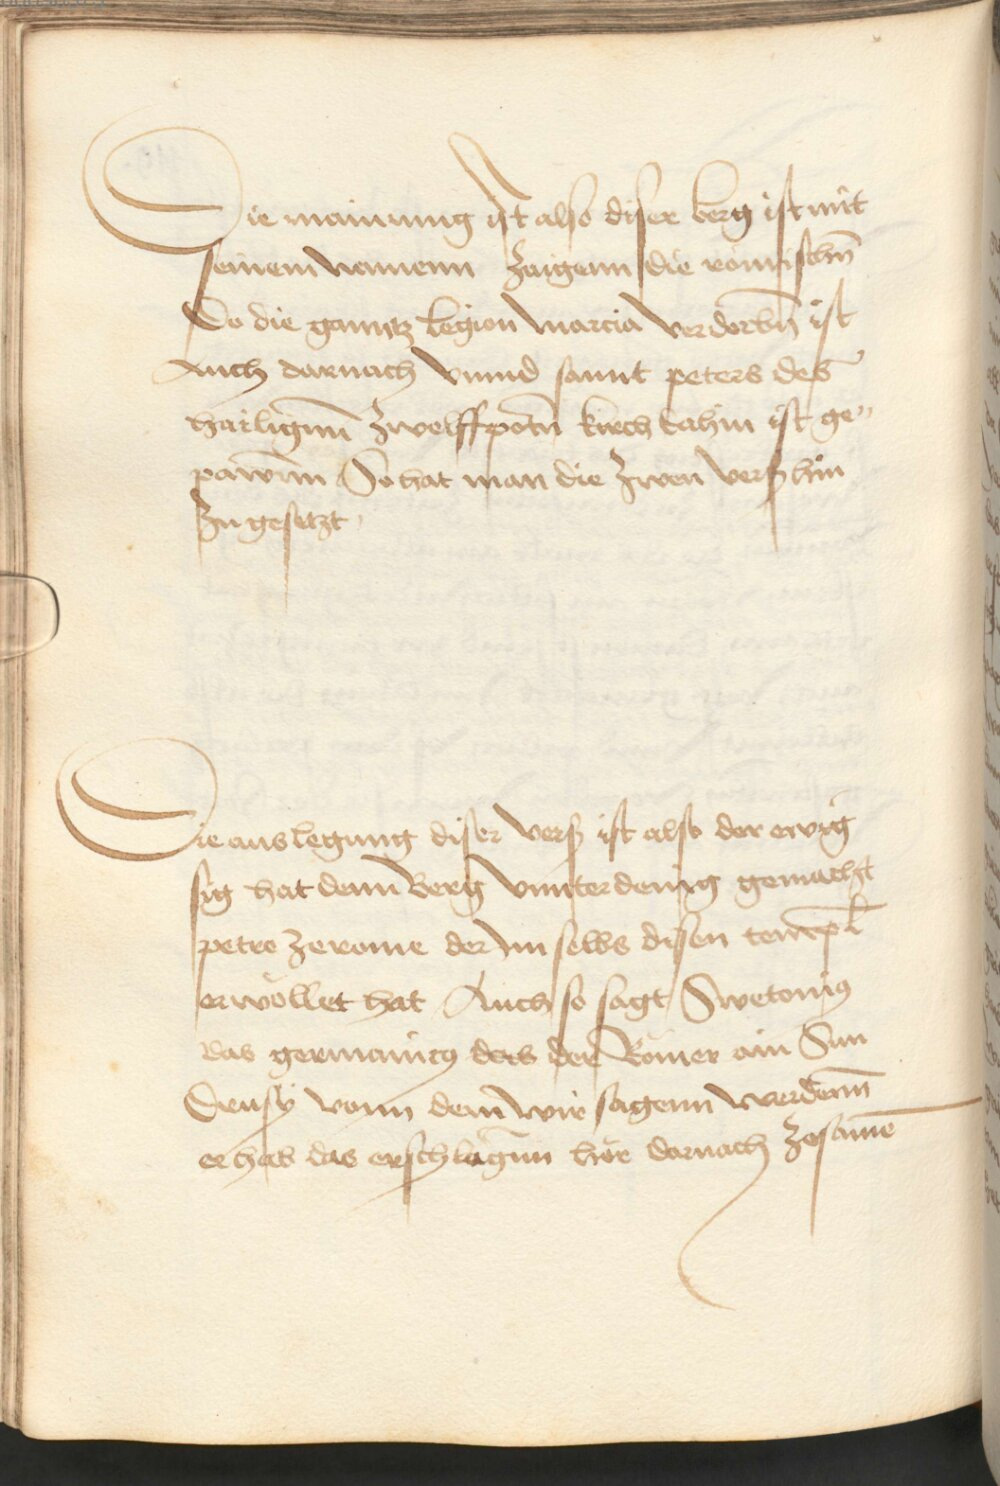 Die mainung ist also diser berg ist mit
seinem namenn zaigenn die römischn̄
Do die ganntz legion Marcia verdorbn̄ ist
Auch darnach vnnd sannt peters des
hailigenn̄ zwelffpotn̄ kirch dahin ist ge„
pawenn So hat man die zwen verß hin
zu gesetzt
Die auslegung diser verß ist also der ewig
sig hat denn Berg vnnterdenig gemacht
petre ze rome der im selbs disen templ
erwöllet hat Auch so sagt Swetonius
das germanicus der Römer ain Sun
Drusy vonn dem wir sagenn werdenn̄
er hab das erschlagenn her darnach zesamē